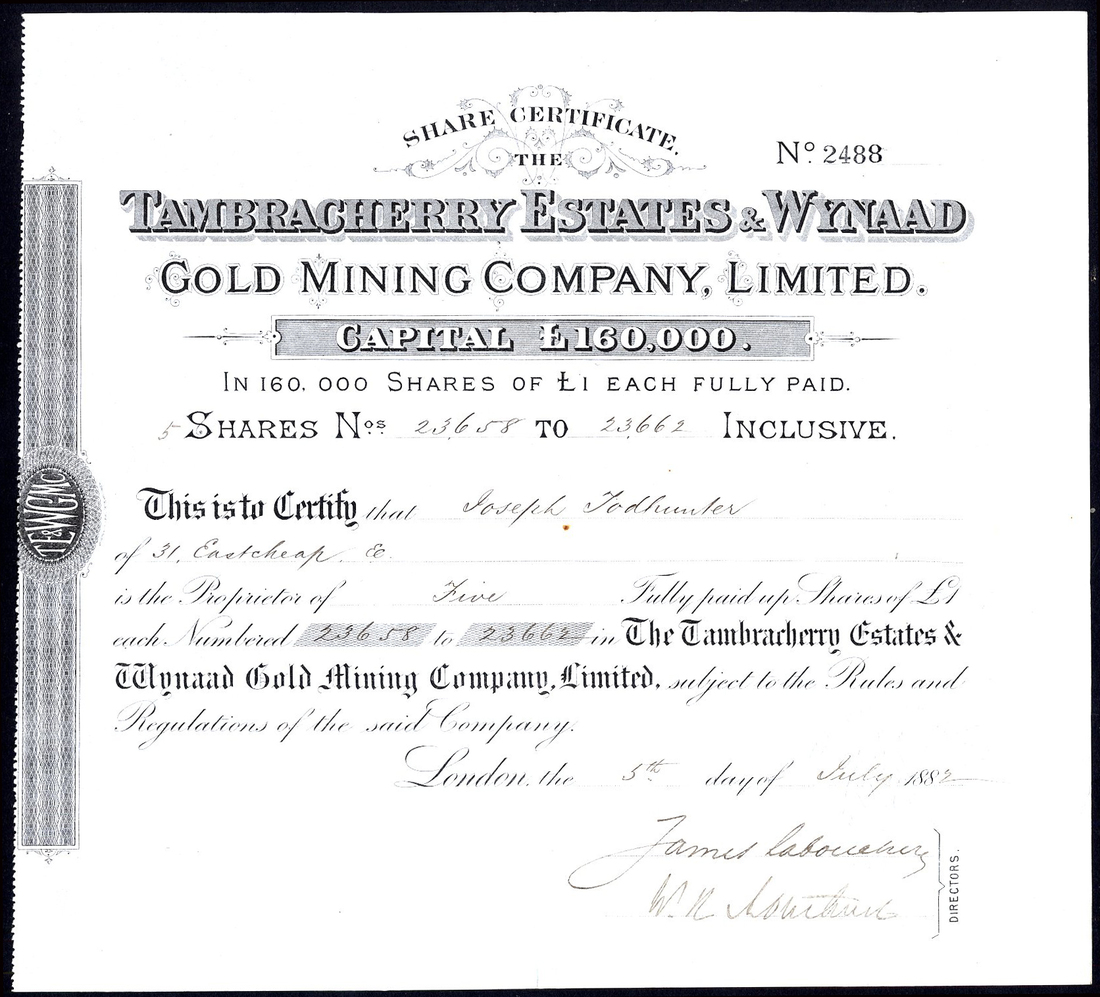 SHARE CERTIFICATE.
Nº 2488
THE
TAMBRACHERRY ESTATES & WYNAAD
GOLD MINING COMPANY, LIMITED.
CAPITAL £160,000.
IN 160,000 SHARES OF £1 EACH FULLY PAID.
5 SHARES Nos 23,658 TO 23,662 INCLUSIVE.
TE&WGMC
This is to Certify that Joseph Todhunter
of 31, Eastcheap, E.
is the Proprietor of Five Fully paid up Shares of £1
each Numbered 23658 to 23662 in The Tambracherry Estates &
Wynaad Gold Mining Company, Limited, subject to the Rules and
Regulations of the said Company.
London, the 5th day of July 1882
James Labouchere
W. R.
DIRECTORS.